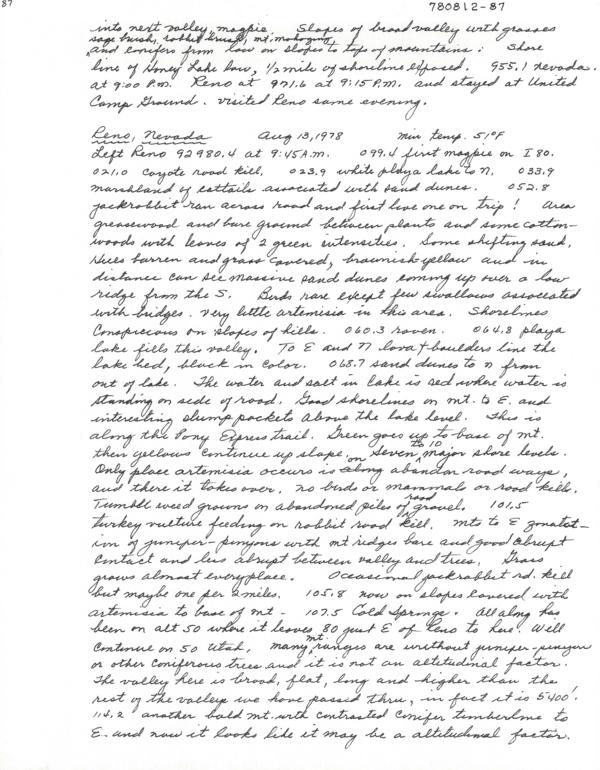 87
780812-87
into next valley magpie Slopes of broad valley with grasses
sage brush, rabbit brush, mt. mahogany
and conifers from low on slopes to top of mountains. Shore
line of Honey Lake low, 1/2 mile of shoreline exposed. 955.1 Nevada
at 9:00 P.M. Reno at 971.6 at 9:15 P.M. and stayed at United
Camp Ground. visited Reno same evening.
Reno, Nevada Aug 13, 1978 Min temp. 51°F
Left Reno 92980.4 at 9:45 A.M. 099.4 first magpie on I 80.
021.0 Coyote road kill. 023.9 white playa lake to N. 033.9
marshland of cattails associated with sand dunes. 052.8
jackrabbit ran across road and first live one on trip! Area
greasewood and bare ground between plants and some cotton-
woods with leaves of 2 green intensities. Some shifting sand.
Hills barren and grass covered, brownish-yellow and in
distance can see massive sand dunes coming up over a low
ridge from the S. Birds rare except few swallows associated
with bridges. Very little artemisia in this area. Shorelines
Conspicuous on slopes of hills. 060.3 raven. 064.8 playa
lake fills this valley. To E and N lava boulders line the
lake bed, black in color. 068.7 sand dunes to N from
out of lake. The water and salt in lake is red where water is
standing on side of road. Good shorelines on mt. to E. and
interesting slump pockets above the lake level. This is
along the Pony Express trail. Green goes up to base of mt.
then yellows continue up slope, on seven to 10 major shore levels.
Only place artemisia occurs is along abandon road ways,
and there it takes over. No birds or mammals or road kills.
Tumble weed growns on abandoned piles of road gravel. 101.5
turkey vulture feeding on rabbit road kill. mts to E zonatat-
ion of juniper-pinyons with mt ridges bare and good abrupt
Contact and less abrupt between valley and trees. Grass
grows almost everyplace. Occasional jackrabbit rd. kill
but maybe one per 2 miles. 105.8 now on slopes covered with
artemisia to base of mt - 107.5 Cold Springs. All along has
been on alt 50 where it leaves 80 just E of Reno to here. Will
Continue on 50 Utah. Many mt. ranges are without juniper-pinyon
or other coniferous trees and it is not an altitudinal factor.
The valley here is broad, flat, long and higher than the
rest of the valleys we have passed thru, in fact it is 5400'.
114.2 another bald mt. with contrasted conifer timberline to
E. and now it looks like it may be a altitudinal factor.